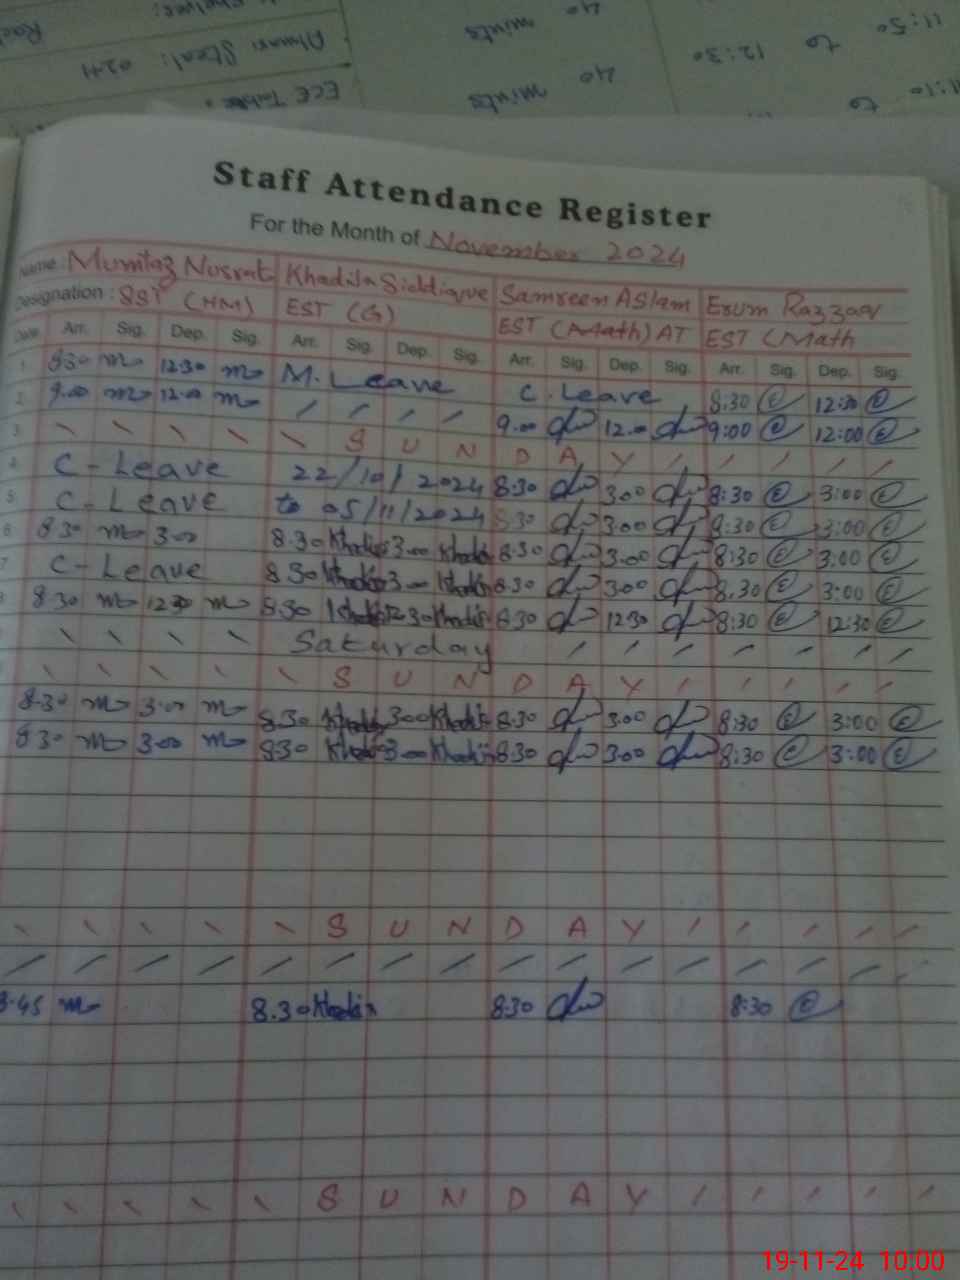 11:50 to 12:30
40 minuts
Almari Steal: 02+1
11:10 to
40 minuts
ECE Table:
Staff Attendance Register
For the Month of November 2024
Name: Mumtaz Nusrat Khadija Siddique Samreen Aslam Erum Razzaq
Designation: SST (HM) EST (G) EST (Math) AT EST (Math
Date Arr. Sig. Dep. Sig. Arr. Sig. Dep. Sig. Arr. Sig. Dep. Sig. Arr. Sig. Dep. Sig.
1 8:30 m 12:30 m M. Leave C. Leave 8:30 12:30
2 9.00 m 12.00 m 9.00 12.00 9:00 12:00
3 S U N D A Y
4 C - Leave 22/10/2024 8:30 3:00 8:30 3:00
5 C - Leave to 05/11/2024 8:30 3:00 8:30 3:00
6 8:30 m 3:00 8.30 Khadija 3.00 Khadija 8:30 3:00 8:30 3:00
7 C - Leave 8.30 Khadija 3.00 Khadija 8:30 3:00 8:30 3:00
8 8:30 m 12:30 m 8:30 Khadija 12:30 Khadija 8:30 12:30 8:30 12:30
Saturday
S U N D A Y
8:30 m 3:00 m 8:30 Khadija 3:00 Khadija 8:30 3:00 8:30 3:00
8:30 m 3:00 m 8:30 Khadija 3.00 Khadija 8:30 3:00 8:30 3:00
S U N D A Y
8.45 m 8.30 Khadija 8:30 8:30
S U N D A Y
19-11-24 10:00